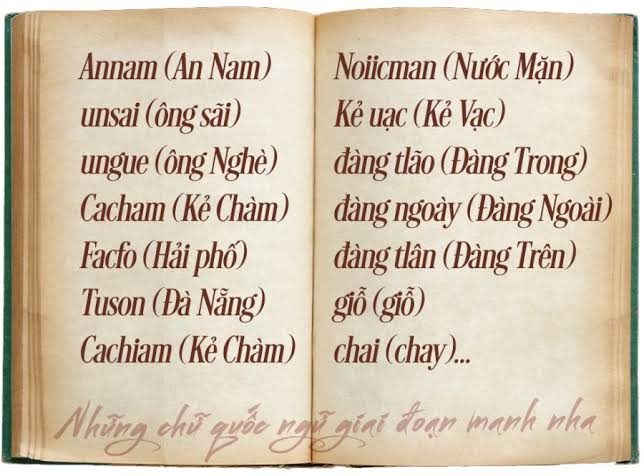 Annam (An Nam)
unsai (ông sãi)
ungue (ông Nghè)
Cacham (Kẻ Chàm)
Facfo (Hải phố)
Tuson (Đà Nẵng)
Cachiam (Kẻ Chàm)
Noiicman (Nước Mặn)
Kẻ uạc (Kẻ Vạc)
đàng tlão (Đàng Trong)
đàng ngoày (Đàng Ngoài)
đàng tlân (Đàng Trên)
giỗ (giỗ)
chai (chay)...
Những chữ quốc ngữ giai đoạn manh nha